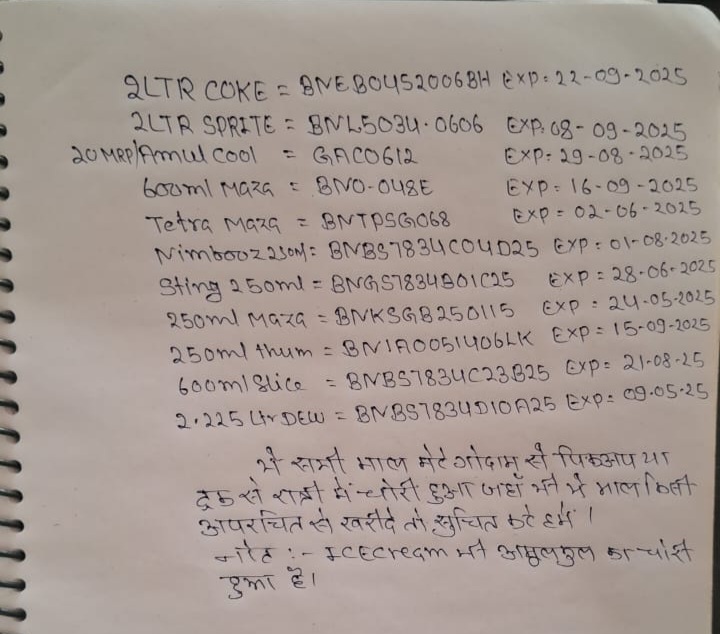 2LTR COKE = BNEB0452006BH EXP: 22-09-2025
2LTR SPRITE = BNL5034.0606 EXP: 08-09-2025
20MRP/Amul COOl = GAC0612 EXP: 29-08-2025
600ml MAZA = BNO-048E EXP = 16-09-2025
Tetra MAZA = BNTPSG068 EXP = 02-06-2025
Nimbooz 250M = BNBS7834C04D25 EXP: 01-08-2025
Sting 250ml = BNGS7834B01C25 EXP = 28-06-2025
250ml MAZA = BNKSGB250115 EXP = 24-05-2025
250ml thum = BN1A0051406LK EXP = 15-09-2025
600ml Slice = BNBS7834C23B25 EXP = 21-08-25
2.225 Ltr DEW = BNBS7834D10A25 EXP: 09.05-25
ये सभी माल मेरे गोदाम से पिकअप या
ट्रक से रात्री में चोरी हुआ जहाँ भी ये माल किसी
अपरचित से खरीदे तो सुचित करे हमें ।
नोट :- ICECream भी अमुलकुल का चोरी
हुआ है।